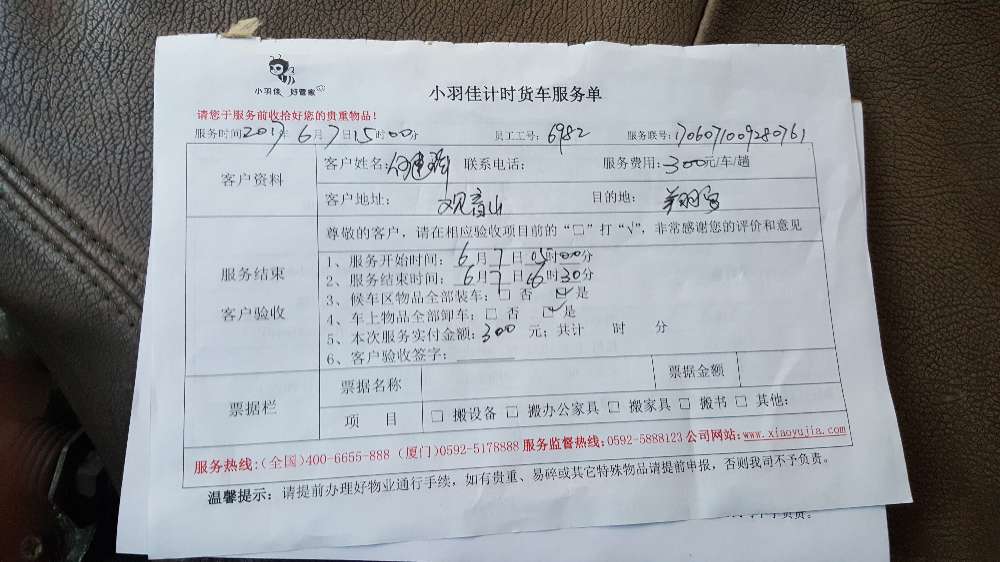 小羽佳 好管家
小羽佳计时货车服务单
请您于服务前收拾好您的贵重物品！
服务时间2017年6月7日15时00分 员工工号：6982 服务联号：1706071009280761
客户资料
客户姓名： 联系电话： 服务费用：300元/车/趟
客户地址：观音山 目的地：
尊敬的客户，请在相应验收项目前的“□”打“√”，非常感谢您的评价和意见
服务结束
客户验收
1、服务开始时间：6月7日05时00分
2、服务结束时间：6月7日06时30分
3、候车区物品全部装车：□ 否 ☑ 是
4、车上物品全部卸车：□ 否 ☑ 是
5、本次服务实付金额：300 元；共计 时 分
6、客户验收签字：
票据栏
票据名称 票据金额
项 目 □ 搬设备 □ 搬办公家具 □ 搬家具 □ 搬书 □ 其他：
服务热线：（全国）400-6655-888 （厦门）0592-5178888 服务监督热线：0592-5888123 公司网站：www.xiaoyujia.com
温馨提示：请提前办理好物业通行手续，如有贵重、易碎或其它特殊物品请提前申报，否则我司不予负责。